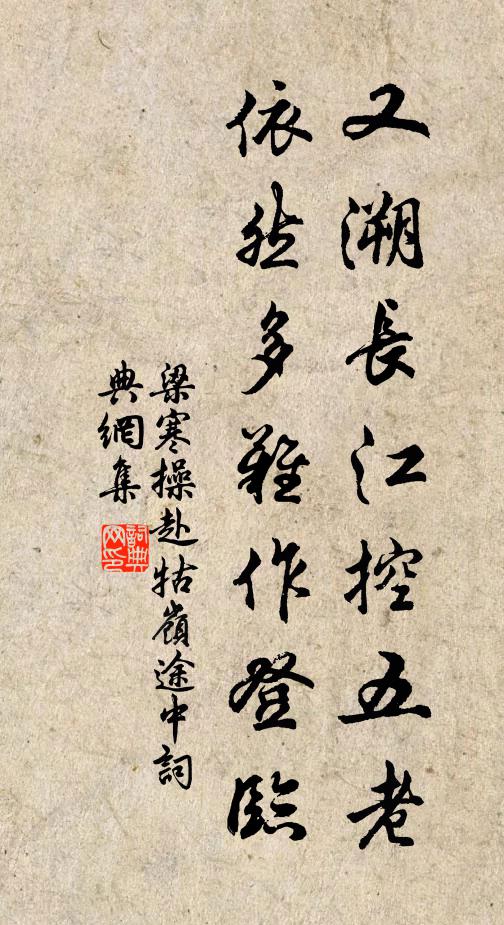 又溯長江控五老
依然多難作登臨
梁寒操赴牯嶺途中詞
典網集
詞典网印